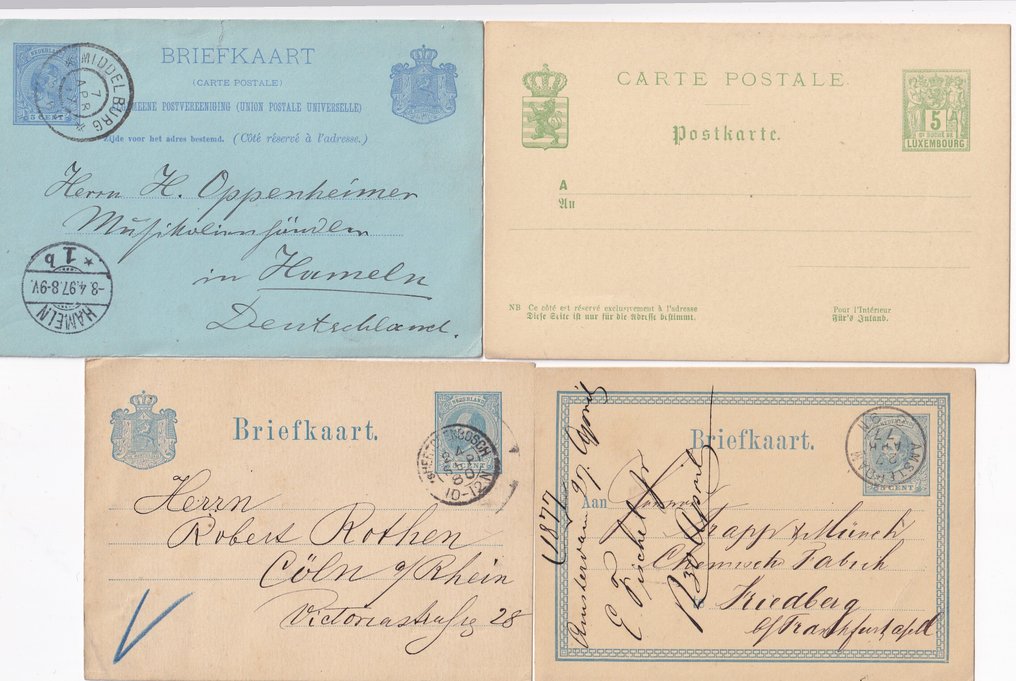 NEDERLAND
5 CENT
MIDDELBURG
7
APR
BRIEFKAART
(CARTE POSTALE)
MEENE POSTVEREENIGING (UNION POSTALE UNIVERSELLE)
Zijde voor het adres bestemd. (Côté réservé à l'adresse.)
Herrn H. Oppenheimer
Musikalienhändler
in Hameln
Deutschland.
HAMELN
-8.4.97.8-9V.
* 1b
CARTE POSTALE
Postkarte.
5
LUXEMBOURG
A
An
NB Ce côté est réservé exclusivement à l'adresse
Diese Seite ist nur für die Adresse bestimmt.
Pour l'Intérieur
Für's Inland.
Briefkaart.
NEDERLAND
CENT
10-12N
Herrn
Robert Rothen
Cöln a/Rhein
Victoriastraße 28
Briefkaart.
5 CENT
AMSTERDAM
27
APR
77
Aan
Trapp & Münch
Chemische Fabrik
Friedberg
b/Frankfurt a/M
(1877
Amsterdam 27. April
E Fischel Jr